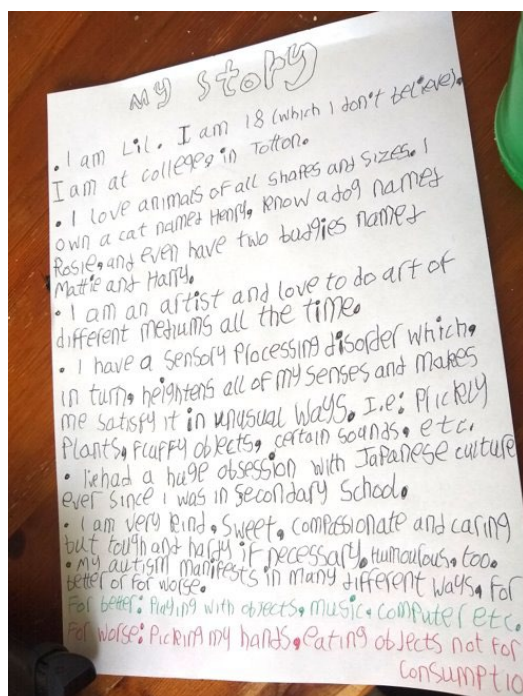 My Story
• I am Lil. I am 18 (which I don't believe).
I am at college, in Totton.
• I love animals of all shapes and sizes. I
own a cat named Henry, know a dog named
Rosie, and even have two budgies named
Mattie and Harry.
• I am an artist and love to do art of
different mediums all the time.
• I have a sensory processing disorder which,
in turn, heightens all of my senses and makes
me satisfy it in unusual ways. I.e: Prickly
Plants, Fluffy objects, certain sounds, etc.
• I've had a huge obsession with Japanese culture
ever since I was in Secondary School.
• I am very kind, sweet, compassionate and caring
but tough and hardy if necessary. Humourous, too.
• My autism manifests in many different ways, for
better or for worse.
For better: Playing with objects, music, computer etc.
For worse: Picking my hands, eating objects not for
consumptio